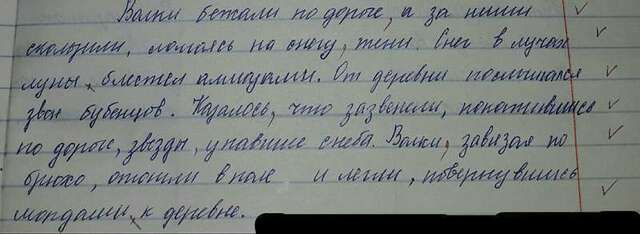 Волки бежали по дороге, а за ними
скользили, ломаясь на снегу, тени. Снег в лучах
луны, блестел алмазами. От деревни послышался
звон бубенцов. Казалось, что зазвенели, покатившись
по дороге, звёзды, упавшие с неба. Волки, завязая по
брюхо, отошли в поле и легли, повернувшись
мордами, к деревне.